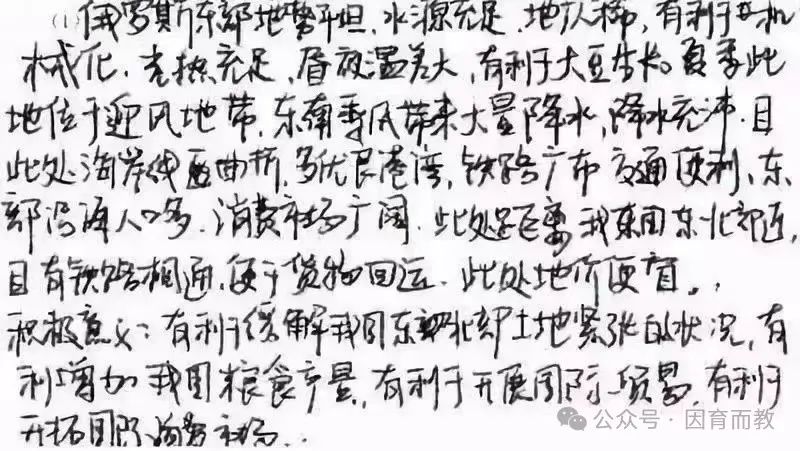 (1)俄罗斯东部地势平坦,水源充足,地广人稀,有利于机
械化,光热充足,昼夜温差大,有利于大豆生长。夏季此
地位于迎风地带,东南季风带来大量降水,降水充沛.且
此处海岸线曲折,多优良港湾,铁路广布交通便利、东
部沿海人口多.消费市场广阔.此处距离我国东北部近,
且有铁路相通,便于货物回运.此处地价便宜。
积极意义:有利于缓解我国东北部土地紧张的状况,有
利增加我国粮食产量,有利于开展国际贸易,有利于
开拓国际消费市场..
公众号·因育而教